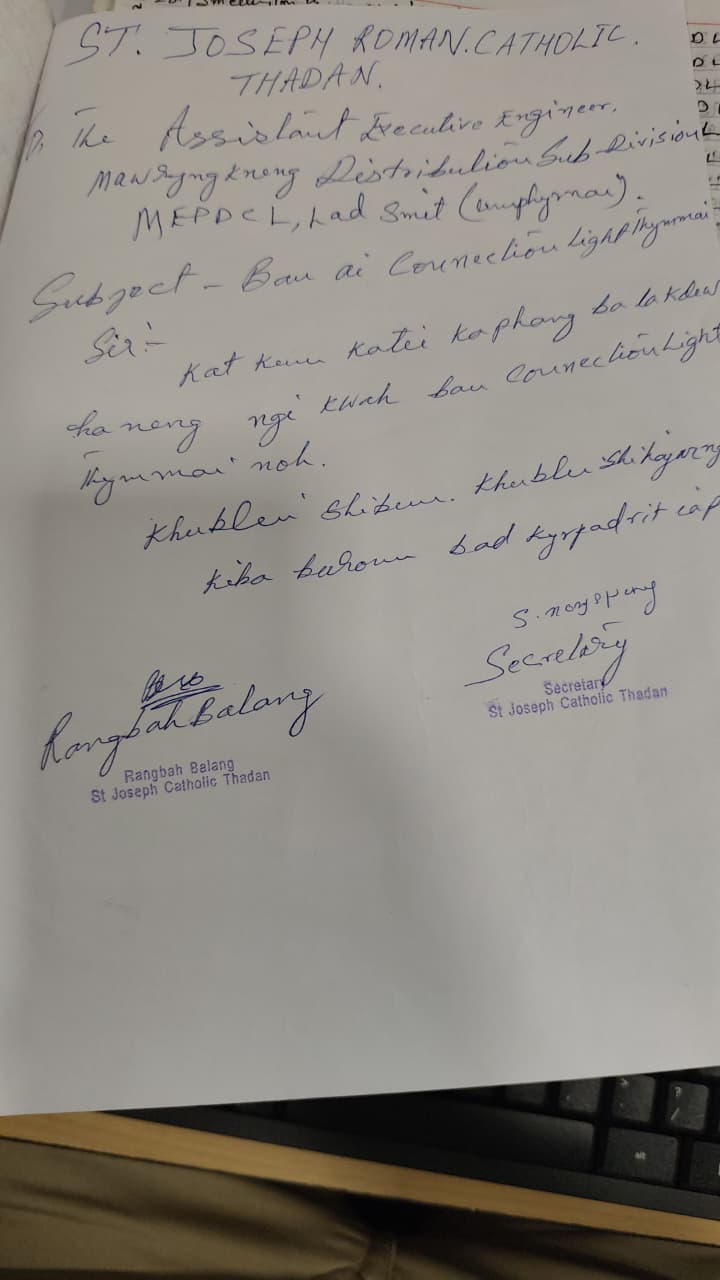 ST. JOSEPH ROMAN.CATHOLIC.
THADAN.
The Assistant Executive Engineer.
Mawryngkneng Distribution Sub-Division
MEPDCL, Lad Smit (
Subject - Ban ai Connection Light Thymmai.
Sir:-
Kat kum katei kaphang ba la kdew
ha neng ngi kwah ban Connection Light
Thymmai noh.
Khublei Shibun. Khublei Shihajarng
kiba bunoun bad kyrpad rit
S. nongspung
Secretary
Secretary
St Joseph Catholic Thadan
Rangbah Balang
Rangbah Balang
St Joseph Catholic Thadan
alt